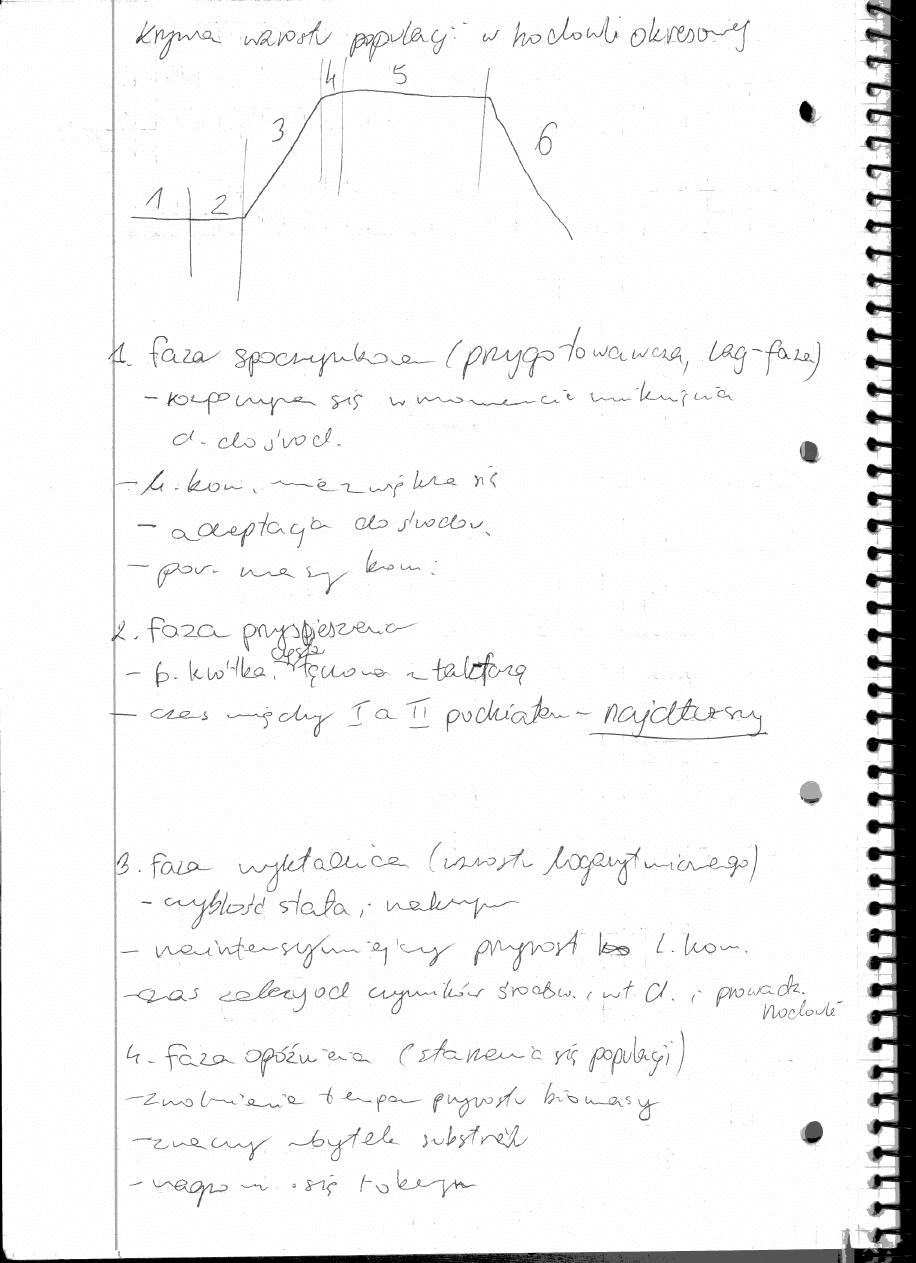 Krzywa wzrostu populacji w hodowli okresowej
1 2 3 4 5 6
1. faza spoczynkowa (przygotowawcza, lag-faza)
- rozpoczyna się w momencie wniknięcia
d. do środ.
- l. kom. nie zwiększa się
- adaptacja do środow.
- pow. masy kom.
2. faza przyspieszenia
często
- b. krótka, łączona z fazą
- czas między I a II podziałem - najdłuższy
3. faza wykładnicza (wzrostu logarytmicznego)
- szybkość stała i maksym
- najintensywniejszy przyrost l. kom.
- czas zależy od czynników środow., wł. d. i prowadz.
hodowli
4. faza opóźnienia (starzenia się populacji)
- zwolnienie tempa przyrostu biomasy
- znaczny ubytek substratu
- nagrom. się toksyn